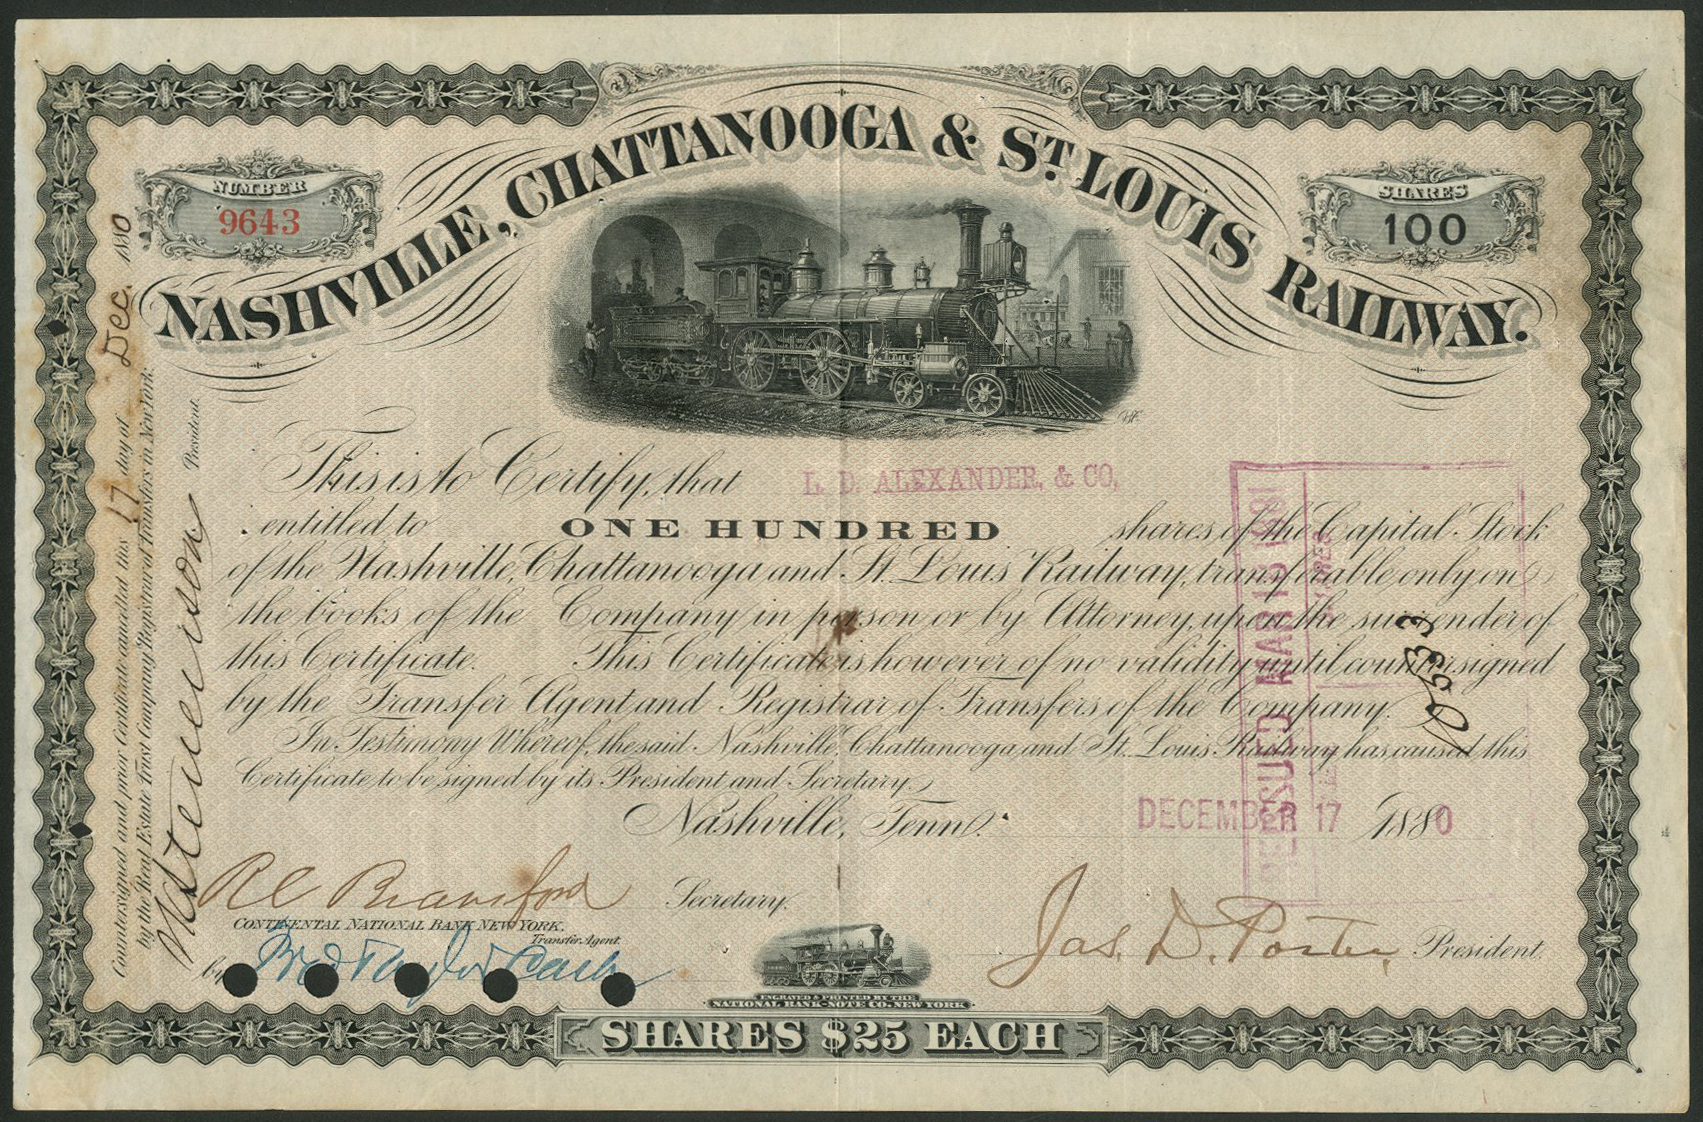 NASHVILLE, CHATTANOOGA & ST. LOUIS RAILWAY.
NUMBER
9643
SHARES
100
This is to Certify, that L. D. ALEXANDER, & CO,
entitled to ONE HUNDRED shares of the Capital Stock
of the Nashville, Chattanooga and St. Louis Railway, transferable only on
the books of the Company in person or by Attorney, upon the surrender of
this Certificate. This Certificate is however of no validity until countersigned
by the Transfer Agent and Registrar of Transfers of the Company.
In Testimony Whereof, the said Nashville, Chattanooga and St. Louis Railway has caused this
Certificate to be signed by its President and Secretary.
Nashville, Tenn. DECEMBER 17 1880
R C Bransford Secretary.
CONTINENTAL NATIONAL BANK NEW YORK.
Transfer Agent.
by
Jas. D. Porter President.
ENGRAVED & PRINTED BY THE
NATIONAL BANK-NOTE CO. NEW YORK
SHARES $25 EACH
Countersigned and prior Certificate cancelled this 17 day of Dec. 1880
by the Real Estate Trust Company Registrar of Transfers in New York
President.
ISSUED MAR 18 1881